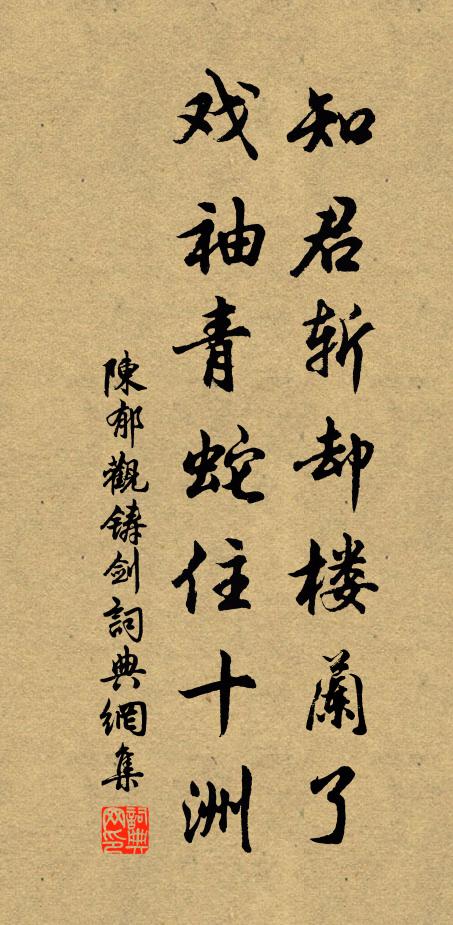 知君斩却楼蘭了
戏袖青蛇住十洲
陳郁觀铸劍詞典網集
詞典网印